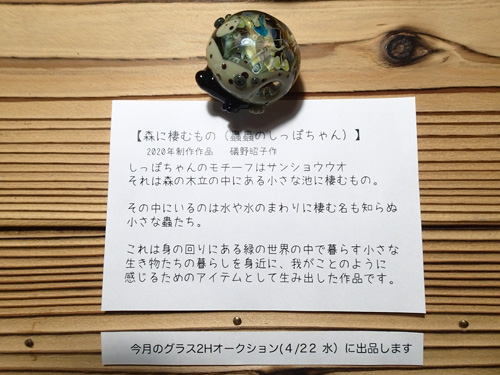 【森に棲むもの（蟲蟲のしっぽちゃん）】
2020年制作作品　礒野昭子作
しっぽちゃんのモチーフはサンショウウオ
それは森の木立の中にある小さな池に棲むもの。
その中にいるのは水や水のまわりに棲む名も知らぬ
小さな蟲たち。
これは身の回りにある緑の世界の中で暮らす小さな
生き物たちの暮らしを身近に、我がことのように
感じるためのアイテムとして生み出した作品です。
今月のグラス2Hオークション(4/22 水）に出品します